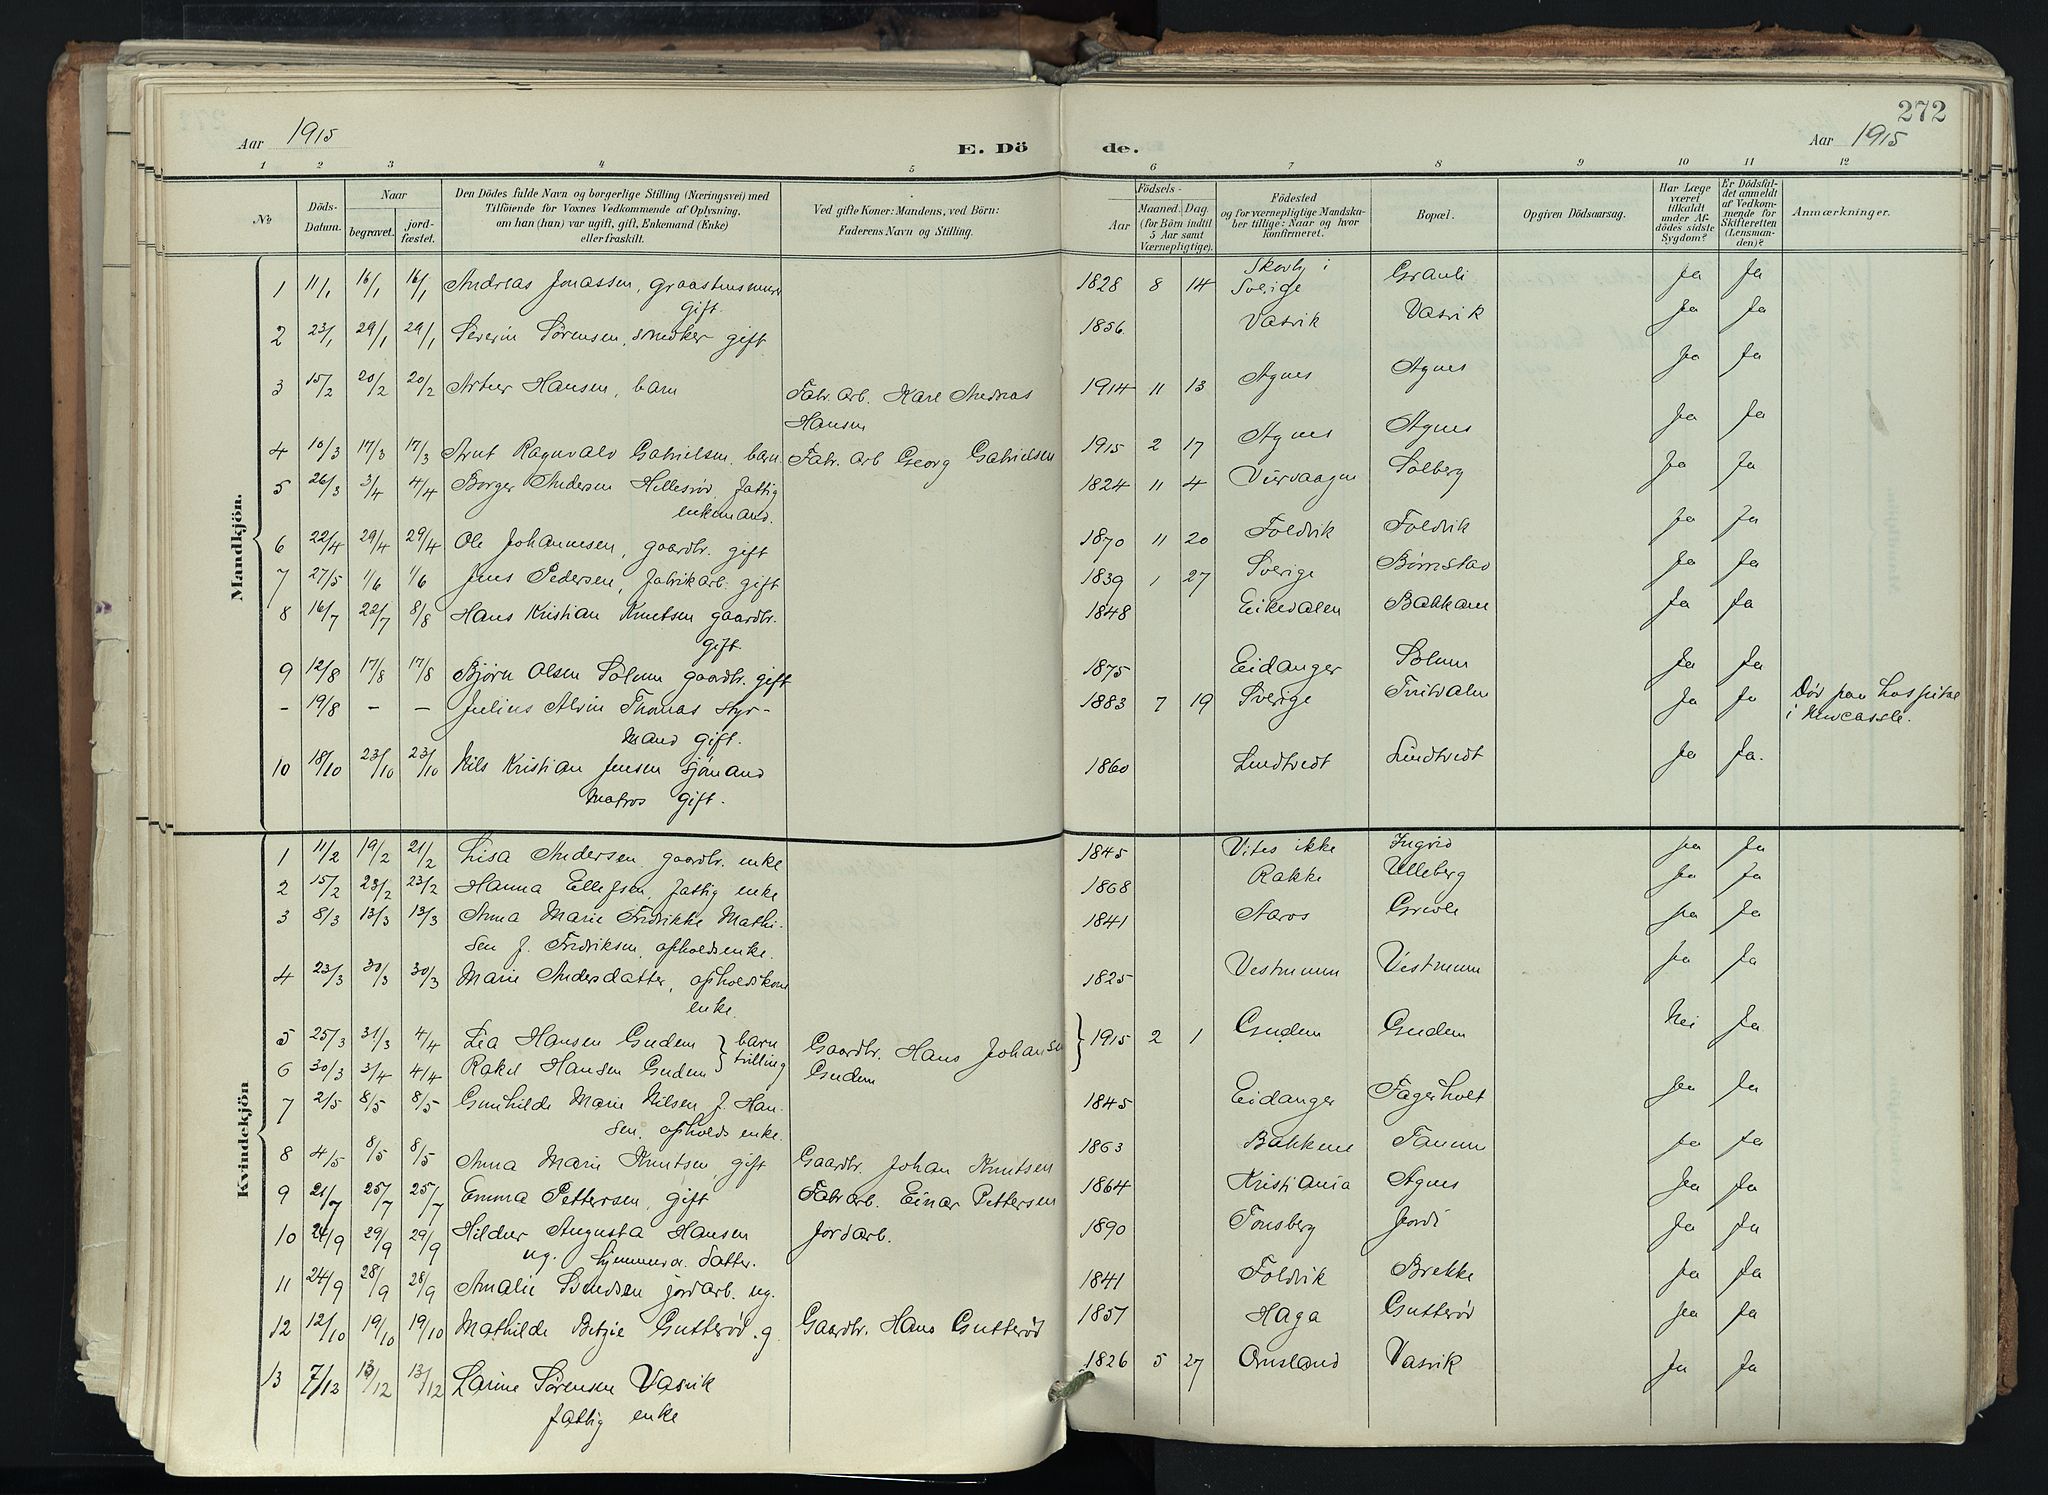 272
Aar 1915
E. Dö
de.
Aar 1915
1 2 3 4 5 6 7 8 9 10 11 12
No
Döds-Datum.
Naar
begravet.
jord-fæstet.
Den Dödes fulde Navn og borgerlige Stilling (Næringsvei) med
Tilföiende for Voxnes Vedkommende af Oplysning,
om han (hun) var ugift, gift, Enkemand (Enke)
eller fraskilt.
Ved gifte Koner: Mandens, ved Börn:
Faderens Navn og Stilling.
Födsels-
Aar
Maaned. Dag.
(for Börn indtil
5 Aar samt
Værnepligtige).
Födested
og for værnepligtige Mandska-
ber tillige: Naar og hvor
konfirmeret.
Bopæl.
Opgiven Dödsaarsag.
Har Læge
været
tilkaldt
under Af-
dödes sidste
Sygdom?
Er Dödsfal-
det anmeldt
af Vedkom-
mende for
Skifteretten
(Lensman-
den)?
Anmærkninger.
Mandkjön.
1 11/1 16/1 16/1 Andreas Jonassen, graastensmurer 1828 8 14 Skovby i Sverige Grauli Ja Ja
gift.
2 23/1 29/1 29/1 Severin Sørensen, snedker gift 1856 Vasvik Vasvik Ja Ja
3 15/2 20/2 20/2 Artur Hansen, barn Fabr. arb. Karl Andreas 1914 11 13 Agnes Agnes Ja Ja
Hansen
4 10/3 17/3 17/3 Arnt Ragnvald Gabrielsen, barn Fabr. arb Georg Gabrielsen 1915 2 17 Agnes Agnes Ja Ja
5 26/3 3/4 4/4 Borger Andersen Hillesrød, fattig 1824 11 4 Solberg Ja Ja
enkemand.
6 22/4 29/4 29/4 Ole Johannesen, gaardbr. gift 1870 11 20 Foldvik Foldvik Ja Ja
7 27/5 1/6 1/6 Jens Pedersen, fabrikarb. gift 1839 1 27 Sverige Børnstad Ja Ja
8 16/7 22/7 8/8 Hans Kristian Knutsen gaardbr. 1848 Eikedalen Bakkane Ja Ja
gift.
9 12/8 17/8 17/8 Bjørn Olsen Solum gaardbr. gift 1875 Eidanger Solum Ja Ja
– 19/8 – – Julius Alvin Thomas Styr- 1883 7 19 Sverige Ja Ja Død paa hospital
mand gift. i Newcassle.
10 18/10 23/10 23/10 Nils Kristian Jensen Sjömand 1860 Lundtvedt Lundtvedt Ja Ja.
Matros gift.
Kvindekjön
1 11/2 19/2 21/2 Lisa Andersen, gaardbr. enke 1845 Vites ikke Ingrid Ja Ja
2 15/2 23/2 23/2 Hanna Ellefsen, fattig enke 1868 Rakke Ulleberg Ja Ja
3 8/3 13/3 13/3 Anna Marie Fredrikke Mathi- 1841 Aaros Ja Ja
sen f. Fredriksen, opholdsenke.
4 23/3 30/3 30/3 Marie Andersdatter, opholdskone 1825 Vestrumm Vestrumm Ja Ja
enke.
5 25/3 31/3 4/4 Lea Hansen Gudem } barn Gaardbr. Hans Johansen } 1915 2 1 Gudem Gudem Nei Ja
6 30/3 3/4 4/4 Rakel Hansen Gudem } tvilling Gudem
7 2/5 8/5 8/5 Gunhilde Marie Nilsen f. Han- 1845 Eidanger Fagerholt Ja Ja
sen. opholds enke.
8 4/5 8/5 8/5 Anna Marie Knutsen, gift Gaardbr. Johan Knutsen 1863 Bakkene Tanum Ja Ja
9 21/7 25/7 25/7 Emma Pettersen, gift Fabr arb. Einar Pettersen 1864 Kristiania Agnes Ja Ja
10 24/9 29/9 29/9 Hildur Augusta Hansen Jordarb. 1890 Tønsberg Jordi Ja Ja
ug. hjemmev. datter.
11 24/9 28/9 28/9 Amalie Svendsen jordarb. ug. 1841 Foldvik Brekke Ja Ja
12 12/10 19/10 19/10 Mathilde Betzie Gutterød. g Gaardbr. Hans Gutterød 1857 Haga Gutterød Ja Ja
13 7/12 13/12 13/12 Larine Sørensen Vasvik 1826 5 27 Ørnsland Vasvik Ja Ja
fattig enke